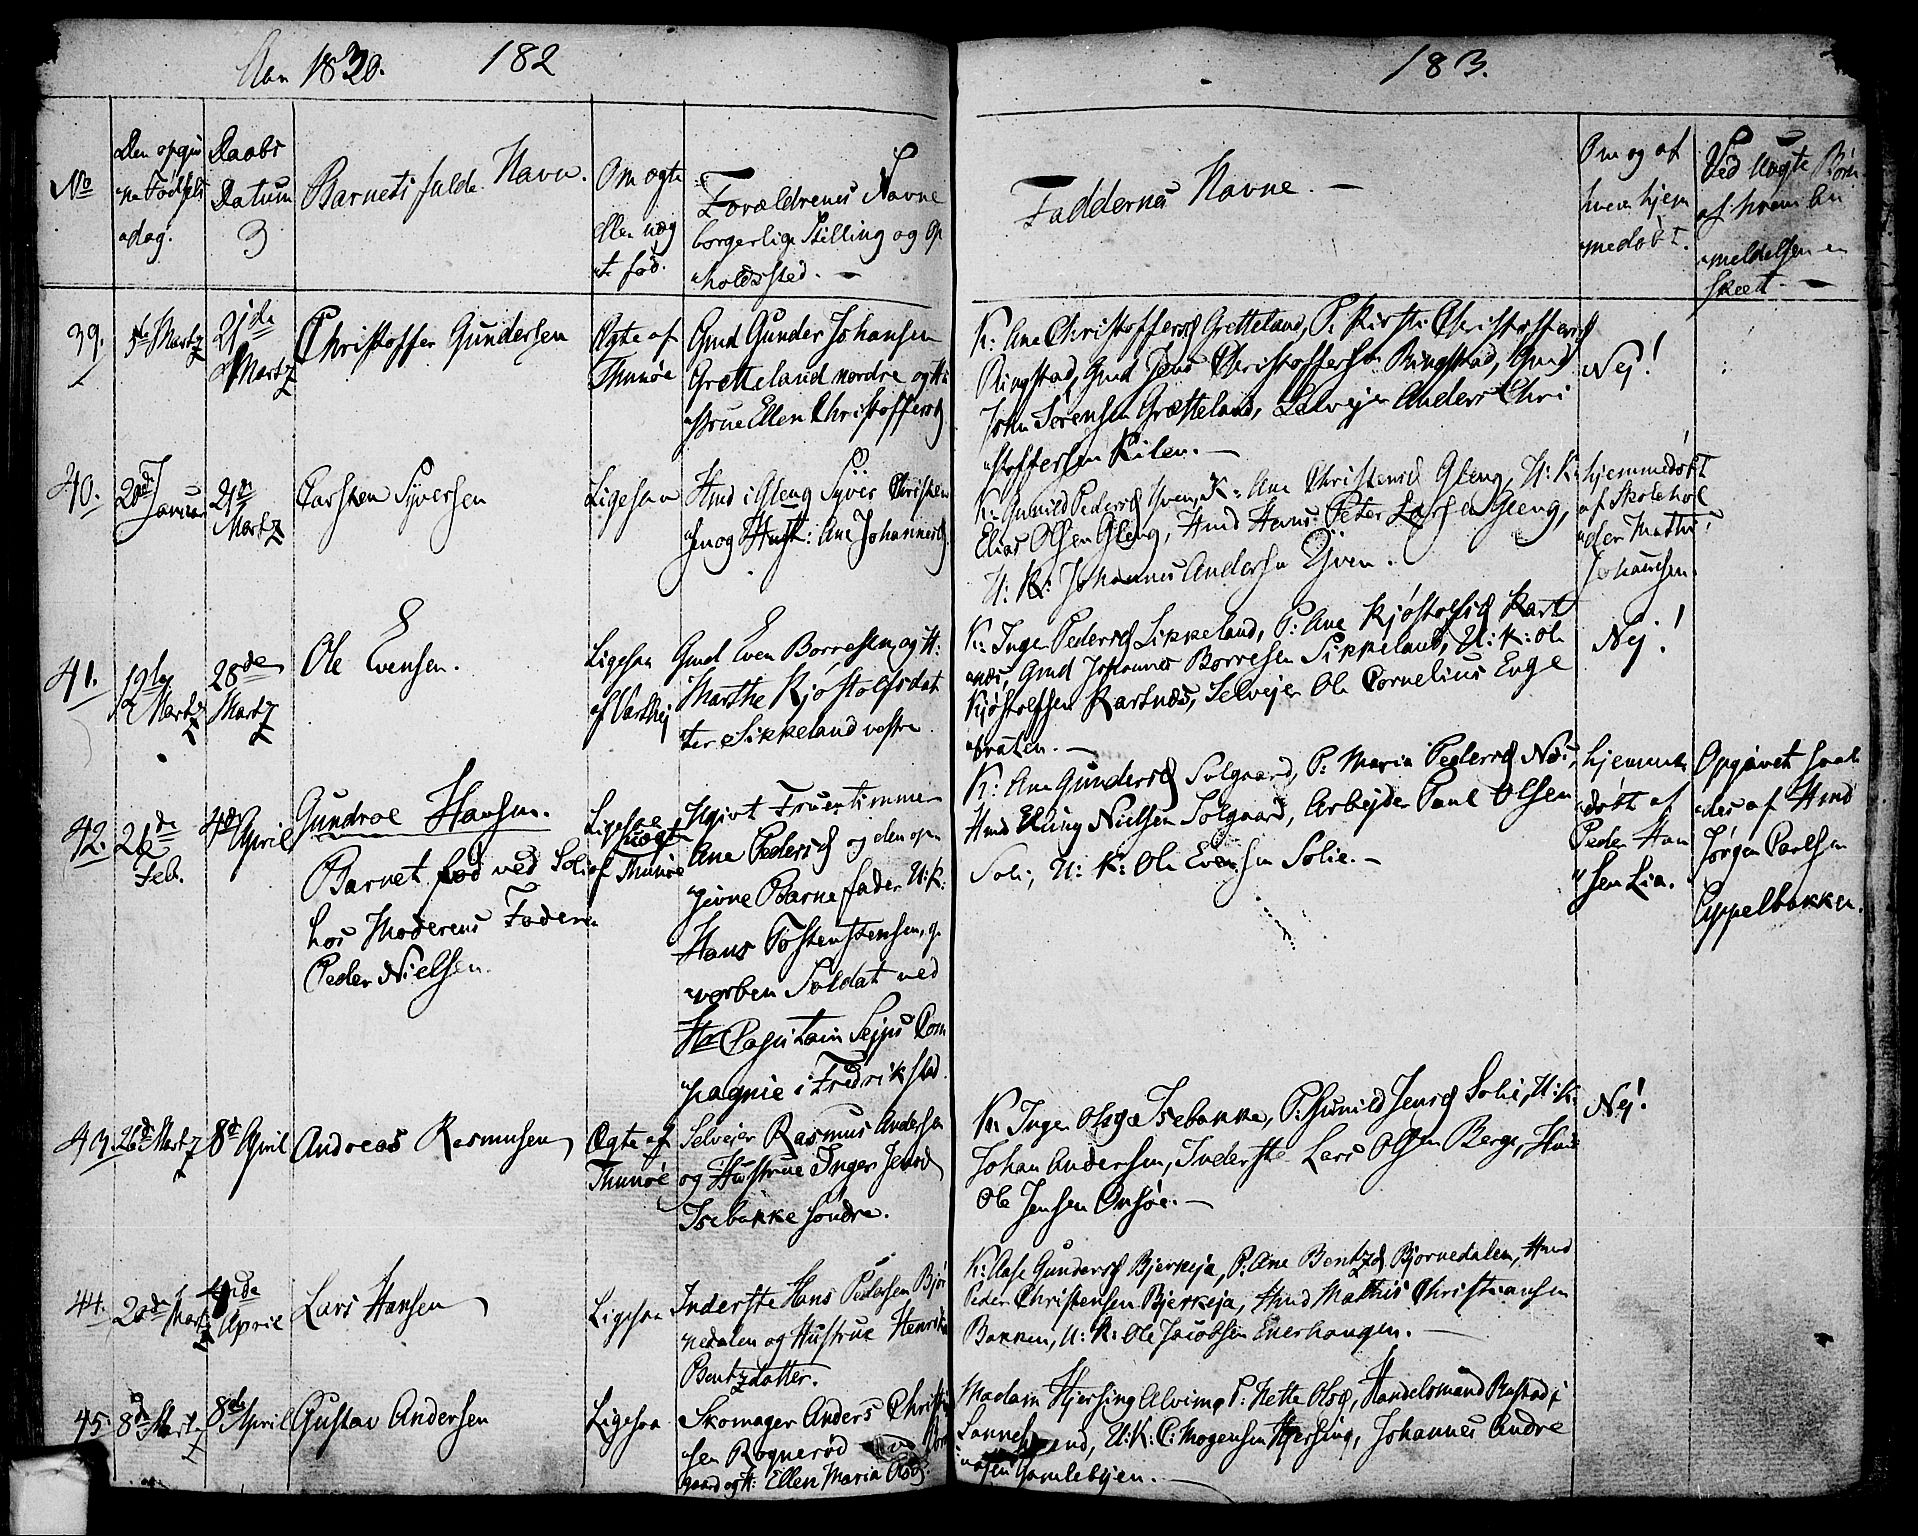 Aar 1820. 182
183.
No
Den opgiv
ne Fødsels
dag.
Daabs
Datum
3
Barnets fulde Navn.
Om ægte
eller uæg
te fød.
Forældrenes Navne
borgerlige Stilling og Op
holdssted. —
Faddernes Navne. —
Om og af
hvem hjem
medøbt.
Ved Uægte Børn
af hvem An
meldelsen er
skeet. —
39.
5te Martz
21de
Martz
Christoffer Gundersen
Ægte af
Thunøe
Gmd Gunder Johansen
Grætteland nordre og Hu
strue Ellen Christoffersd
K: Ane Christoffersd Grætteland, P. Kirsti Christoffersd
Ringstad, Gmd Jens Christoffersen Ringstad, Gmd
John Sørensen Grætteland, Selvejer Anders Chri
stoffersen Kilen. —
Nej!
40.
20de
Januar
21de
Martz
Carsten Syversen
Ligesaa
Hmd i Gleng Syver Christen
sen og Hust: Ane Johannesd
K: Gunild Pedersd Hven, K: Ane Christensd Gleng, U: K:
Elias Olsen Gleng, Hmd Hans Peter Larsen Gleng,
U: K: Johannes Andersen Hven.
hjemmedøbt
af Skolehol
der Mathi
Johannsen.
41.
12te
Martz
28de
Martz
Ole Evensen.
Ligesaa
af Varthej
Gmd Even Borresen og H:
Marthe Kjøstolfsdat
ter Sikkeland vestre
K: Inger Pedersd Sikkeland, P: Ane Kjøstolfsd Kart
næs, Gmd Johannes Borresen Sikkeland, U: K: Ole
Kjøstolfsen Kartnæs, Selvejer Ole Cornelius Enge
braaten. —
Nej!
42.
26de
Feb.
4de April
Gundroe Hansen.
Barnet fød ved Solie
hos Moderens Fader
Peder Nielsen.
Ligesaa
uægt
af Thunøe
Ugivt Fruentimmer
Ane Pedersd og den op
givne Barnefader U: K:
Hans Tostensensen, ge
vorben Soldat ved
Hr Capitain Sejps Com
pagnie i Fredrikstad.
K: Ane Gundersd Solgaard, P: Maria Pedersd Næs,
Hmd Elling Nielsen Solgaard, Arbejder Paul Olsen
Soli, U: K: Ole Evensen Solie. —
hjemme
døbt af
Peder Han
sen Lia.
Opgivet saale
des af Hmd
Jørgen Paulsen
Cappelbakken.
43.
26de Martz
8de April
Andreas Rasmusen
Ægte af
Thunøe
Selvejer Rasmus Andersen
og Hustrue Inger Jensd
Isebakke søndre.
K: Inger Olsd Isebakke, P: Gunild Jensd Solie, U: K:
Johan Andersen, Inderste Lars Olsen Berge, Hmd
Ole Jensen Onsøe. —
Nej!
44.
20de Martz
April
Lars Hansen
Ligesaa
Inderste Hans Pedersen Bjør
nedalen og Hustrue Henrika
Bentzdatter.
K: Aase Gundersd Bjerkeja, P: Ane Bentzd Bjørnedalen, Hmd
Peder Christensen Bjerkeja, Hmd Mathis Christiansen
Bakken, U: K: Ole Jacobsen Enerhaugen. —
45.
8de Martz
8de April
Gustav Andersen
Ligesaa
Skomager Anders Christi
sen Rognerød
gaard og H: Ellen Maria Olsd.
Madam Hjersing Alvim, P: Mette Olsd, Handelsmand Rustad i
Sannesund, U: K: C: Mogensen Hjersing, Johannes Andre
asen Gamlebyen. —